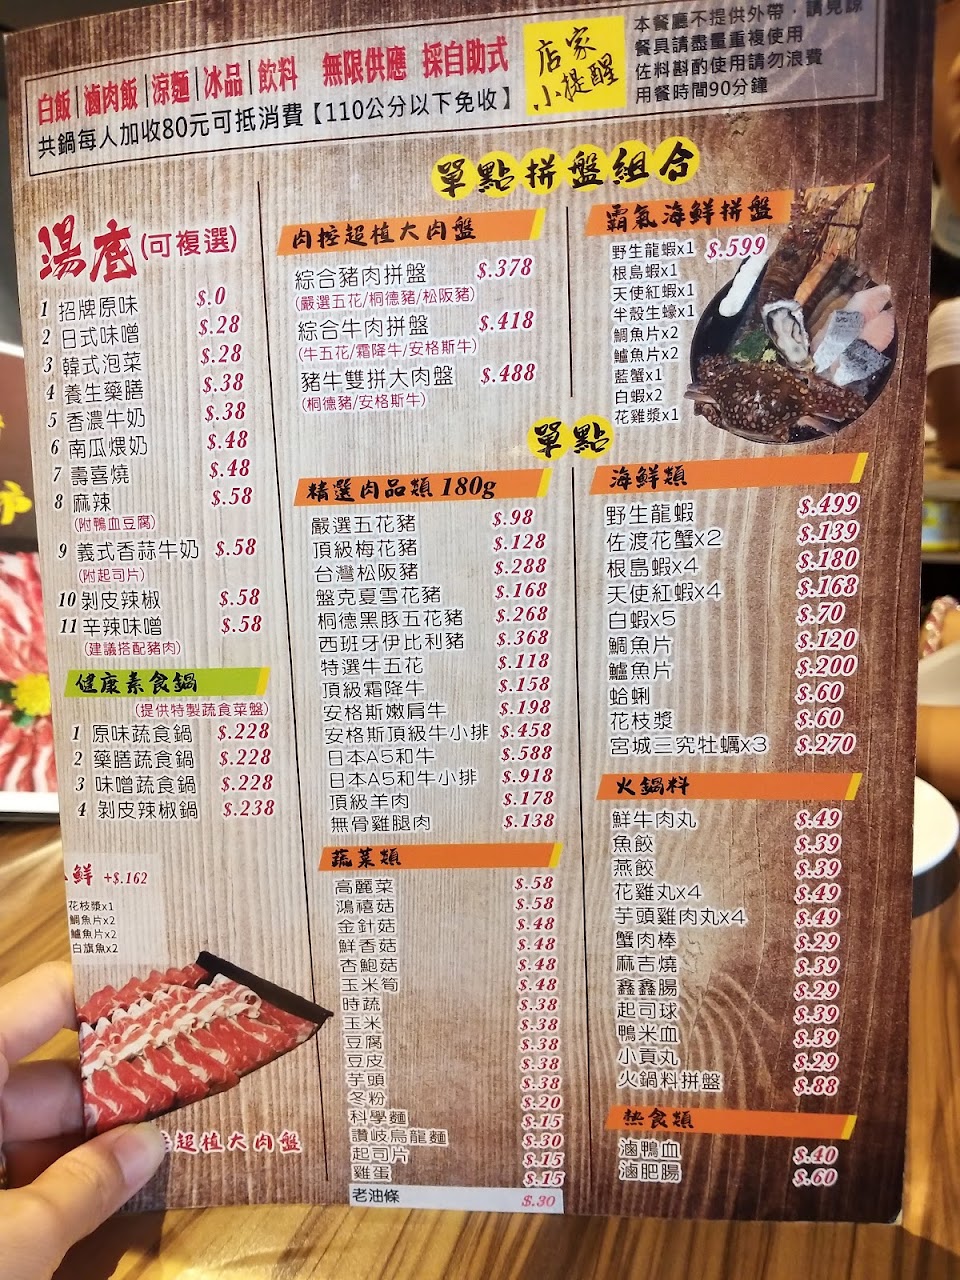 白飯|滷肉飯|涼麵|冰品|飲料 無限供應 採自助式
共鍋每人加收80元可抵消費【110公分以下免收】
店家
小提醒
本餐廳不提供外帶，請見諒
餐具請盡量重複使用
佐料斟酌使用請勿浪費
用餐時間90分鐘
單點拼盤組合
湯底(可複選)
1 招牌原味 $.0
2 日式味噌 $.28
3 韓式泡菜 $.28
4 養生藥膳 $.38
5 香濃牛奶 $.38
6 南瓜煨奶 $.48
7 壽喜燒 $.48
8 麻辣 $.58
(附鴨血豆腐)
9 義式香蒜牛奶 $.58
(附起司片)
10 剝皮辣椒 $.58
11 辛辣味噌 $.58
(建議搭配豬肉)
健康素食鍋
(提供特製蔬食菜盤)
1 原味蔬食鍋 $.228
2 藥膳蔬食鍋 $.228
3 味噌蔬食鍋 $.228
4 剝皮辣椒鍋 $.238
鮮 +$.162
花枝漿x1
鯛魚片x2
鱸魚片x2
白旗魚x2
超值大肉盤
肉控超植大肉盤
綜合豬肉拼盤 $.378
(嚴選五花/桐德豬/松阪豬)
綜合牛肉拼盤 $.418
(牛五花/霜降牛/安格斯牛)
豬牛雙拼大肉盤 $.488
(桐德豬/安格斯牛)
霸氣海鮮拼盤
野生龍蝦x1 $.599
根島蝦x1
天使紅蝦x1
半殼生蠔x1
鯛魚片x2
鱸魚片x2
藍蟹x1
白蝦x2
花雞漿x1
單點
精選肉品類 180g
嚴選五花豬 $.98
頂級梅花豬 $.128
台灣松阪豬 $.288
盤克夏雪花豬 $.168
桐德黑豚五花豬 $.268
西班牙伊比利豬 $.368
特選牛五花 $.118
頂級霜降牛 $.158
安格斯嫩肩牛 $.198
安格斯頂級牛小排 $.458
日本A5和牛 $.588
日本A5和牛小排 $.918
頂級羊肉 $.178
無骨雞腿肉 $.138
蔬菜類
高麗菜 $.58
鴻禧菇 $.58
金針菇 $.48
鮮香菇 $.48
杏鮑菇 $.48
玉米筍 $.48
時蔬 $.38
玉米 $.38
豆腐 $.38
豆皮 $.38
芋頭 $.38
冬粉 $.20
科學麵 $.15
讚岐烏龍麵 $.30
起司片 $.15
雞蛋 $.15
老油條 $.30
海鮮類
野生龍蝦 $.499
佐渡花蟹x2 $.139
根島蝦x4 $.180
天使紅蝦x4 $.168
白蝦x5 $.70
鯛魚片 $.120
鱸魚片 $.200
蛤蜊 $.60
花枝漿 $.60
宮城三究牡蠣x3 $.270
火鍋料
鮮牛肉丸 $.49
魚餃 $.39
燕餃 $.39
花雞丸x4 $.49
芋頭雞肉丸x4 $.49
蟹肉棒 $.29
麻吉燒 $.39
鑫鑫腸 $.29
起司球 $.39
鴨米血 $.39
小貢丸 $.29
火鍋料拼盤 $.88
熱食類
滷鴨血 $.40
滷肥腸 $.60